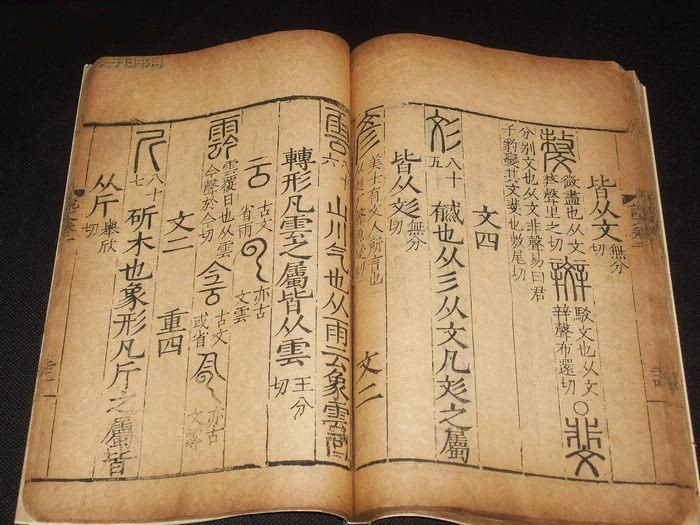 皆从文 無分切
微畫也从文𠩺聲里之切 辬 駁文也从文辡聲布還切 ○ 斐
分別文也从文非聲易曰君子豹變其文斐也敷尾切
文四
彣 八十五 𢒰也从彡从文凡彣之屬
皆从彣 無分切
彥 美士有文人所言也 文二
雲 八十六 山川气也从雨云象雲回
轉形凡雲之屬皆从雲 王分切
云 古文省雨 亦古文雲
霒 雲覆日也从雲今聲於今切 古文或省 亦古文霒
文二 重四
斤 八十七 斫木也象形凡斤之屬皆
从斤 舉欣切
夫子旧书网